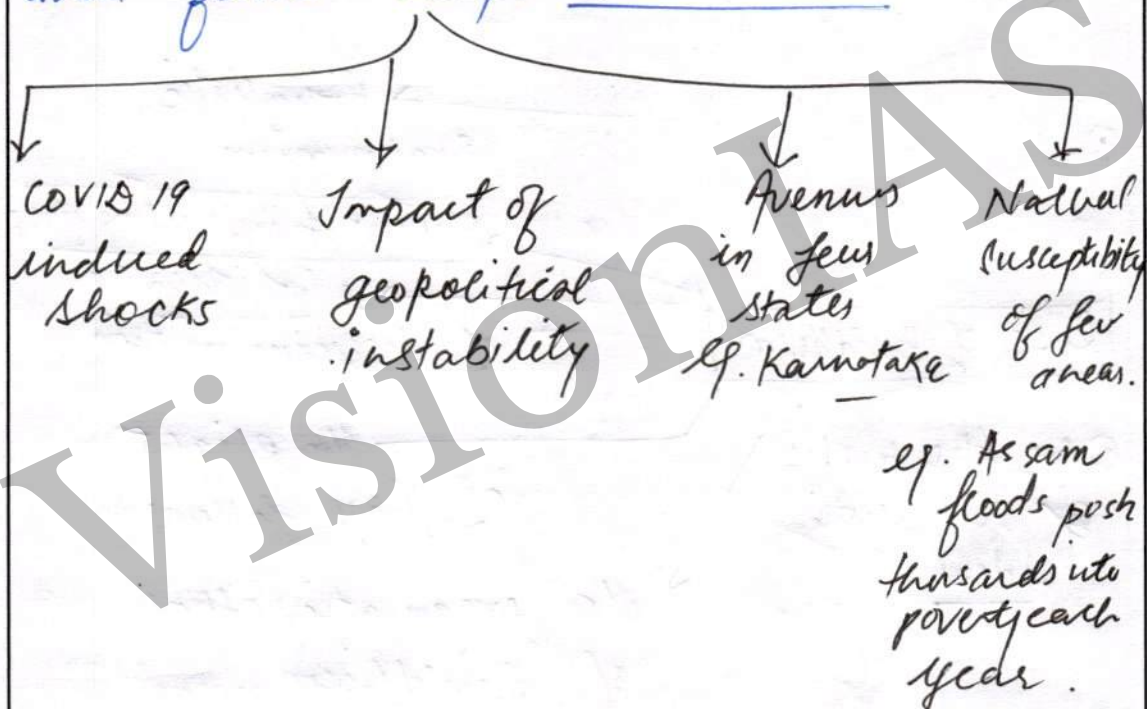 COVID 19
induced
shocks
Impact of
geopolitical
instability
Avenus
in few
states
eg. Karnataka
Natual
susceptibity
of few
areas.
eg. Assam
floods posh
thousands into
poverty each
year.
VisionIAS